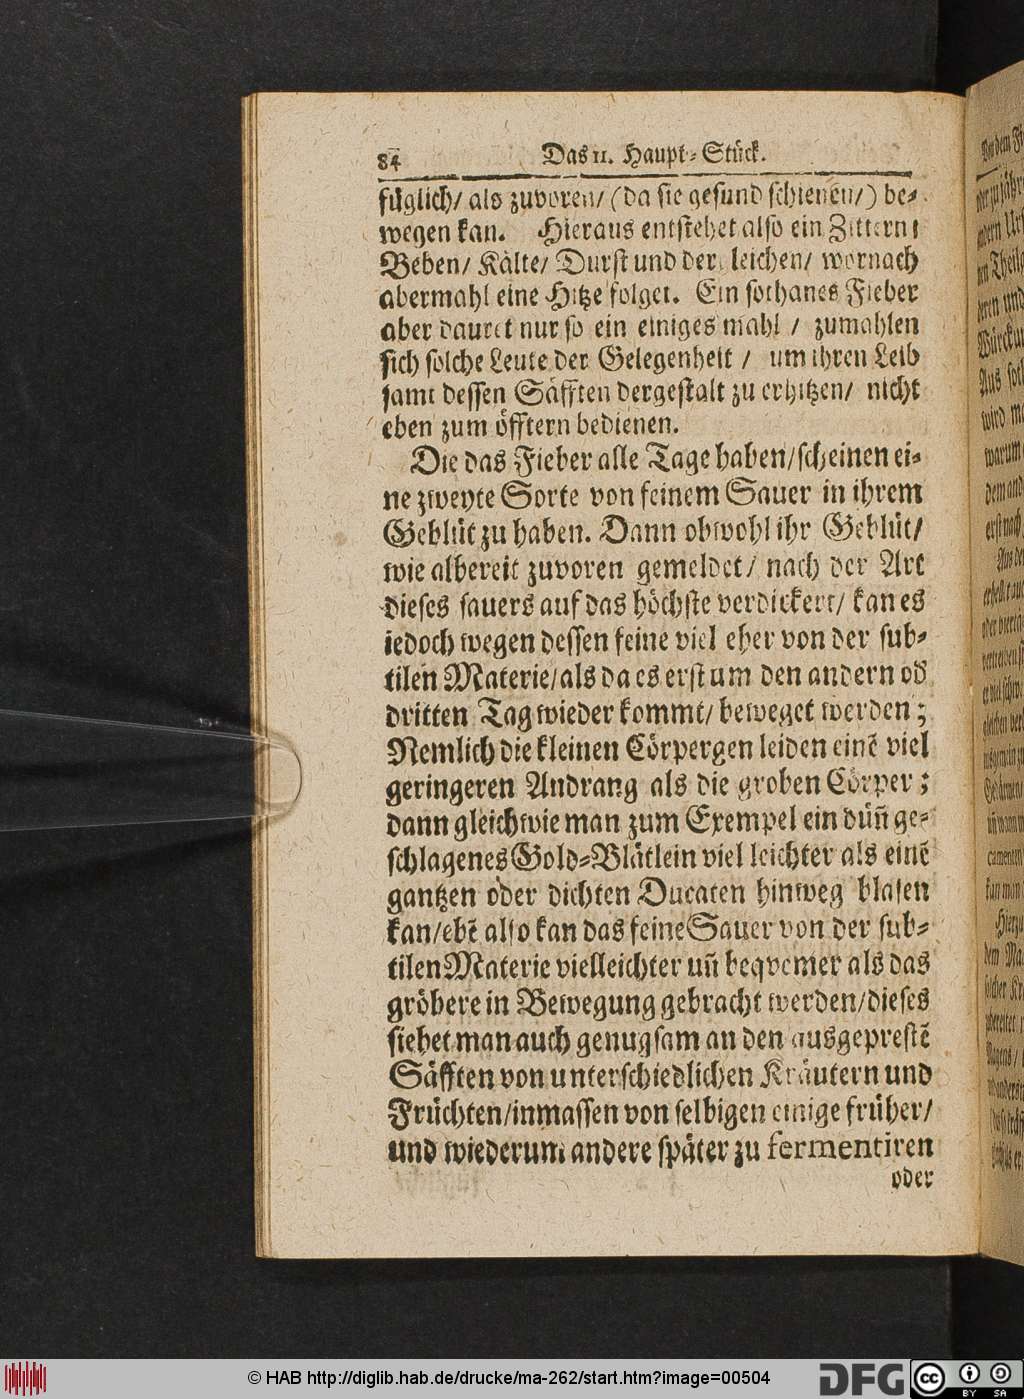 84 Das 11. Haupt-Stück.
füglich/ als zuvoren/ (da sie gesund schienen/) be-
wegen kan. Hieraus entstehet also ein Zittern/
Beben/ Kälte/ Durst und dergleichen/ wornach
abermahl eine Hitze folget. Ein sothanes Fieber
aber dauret nur so ein einiges mahl / zumahlen
sich solche Leute der Gelegenheit / um ihren Leib
samt dessen Säfften dergestalt zu erhitzen/ nicht
eben zum öfftern bedienen.
Die das Fieber alle Tage haben/scheinen ei-
ne zweyte Sorte von feinem Sauer in ihrem
Geblüt zu haben. Dann obwohl ihr Geblüt/
wie albereit zuvoren gemeldet/ nach der Art
dieses sauers auf das höchste verdickert/ kan es
iedoch wegen dessen feine viel eher von der sub-
tilen Materie/als da es erst um den andern oð
dritten Tag wieder kommt/ beweget werden;
Nemlich die kleinen Cörpergen leiden einẽ viel
geringeren Andrang als die groben Cörper;
dann gleichwie man zum Exempel ein düñ ge-
schlagenes Gold-Blätlein viel leichter als einẽ
gantzen oder dichten Ducaten hinweg blasen
kan/ebẽ also kan das feine Sauer von der sub-
tilen Materie vielleichter uñ beqvemer als das
gröbere in Bewegung gebracht werden/dieses
siehet man auch genugsam an den ausgeprestẽ
Säfften von unterschiedlichen Kräutern und
Früchten/inmassen von selbigen einige früher/
und wiederum andere später zu fermentiren
oder
© HAB http://diglib.hab.de/drucke/ma-262/start.htm?image=00504
DFG
cc
BY SA